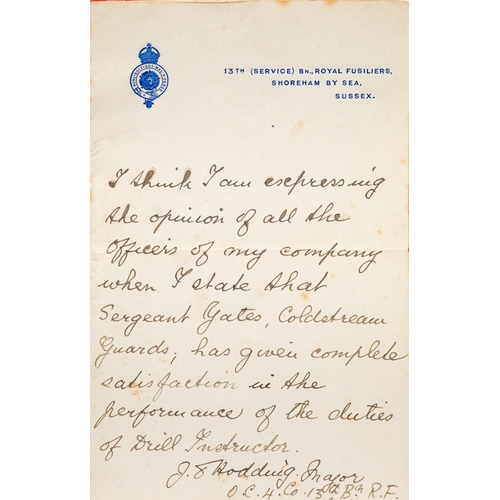 13TH (SERVICE) BN., ROYAL FUSILIERS,
SHOREHAM BY SEA,
SUSSEX.
I think I am expressing
the opinion of all the
officers of my company
when I state that
Sergeant Yates, Coldstream
Guards, has given complete
satisfaction in the
performance of the duties
of Drill Instructor.
Hodding. Major
O.C. 4. Co. Bn R.F.